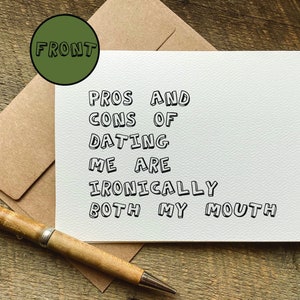 FRONT
PROS AND
CONS OF
DATING
ME ARE
IRONICALLY
BOTH MY MOUTH